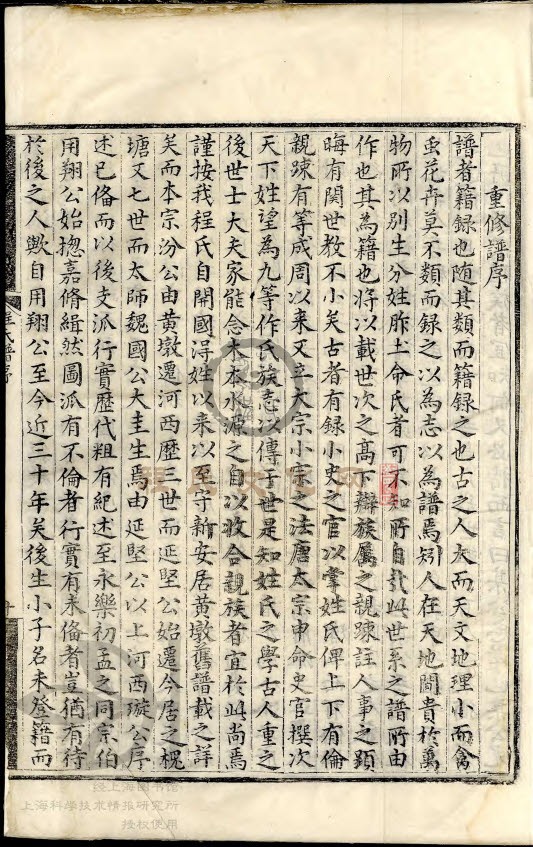 重修譜序
譜者籍録也随其類而籍録之也古之人大而天文地理小而禽
虫花卉莫不類而録之以為志以為譜焉矧人在天地間貴於萬
物所以别生分姓胙土命氏者可不知所自哉此世系之譜所由
作也其為籍也将以載世次之髙下辯族属之親踈註人事之顕
晦有関世教不小矣古者有録小史之官以掌姓氏俾上下有倫
親踈有等成周以来又立大宗小宗之法唐太宗申命史官撰次
天下姓望為九等作氏族志以傳于世是知姓氏之學古人重之
後世士大夫家能念木本水源之自以收合親族者宜於此尚焉
謹按我程氏自開國得姓以来以至守新安居黄墩舊譜載之詳
矣而本宗汾公由黄墩遷河西歴三世而延堅公始遷今居之槐
塘又七世而太師魏國公大圭生焉由延堅公以上河西璇公序
述已俻而以後支派行實歴代粗有紀述至永樂初孟之同宗伯
用翔公始揔嘉脩緝然圖派有不倫者行實有未俻者豈猶有待
於後之人歟自用翔公至今近三十年矣後生小子名未登籍而
程氏譜序
经上海图书馆
上海科学技术情报研究所
授权使用